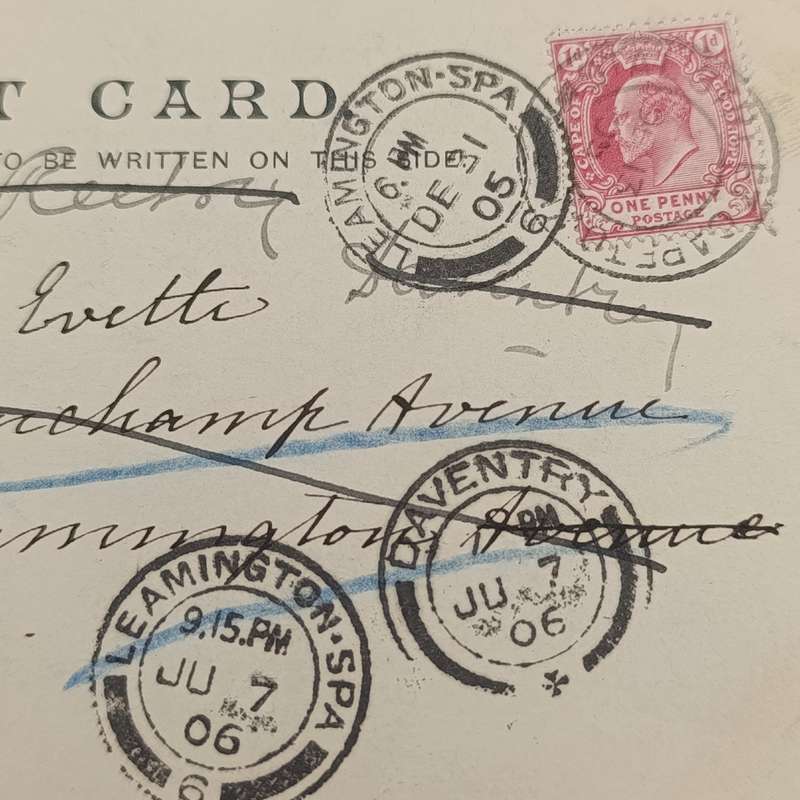 T CARD
TO BE WRITTEN ON THIS SIDE.
LEAMINGTON-SPA
6. PM
DE 31
05
6
1d 1d
CAPE OF GOOD HOPE
ONE PENNY
POSTAGE
CAPE T
Rectory
Daventry
Evette
uchamp Avenue
amington Avenue
DAVENTRY
PM
JU 7
06
LEAMINGTON·SPA
9.15.PM
JU 7
06
6